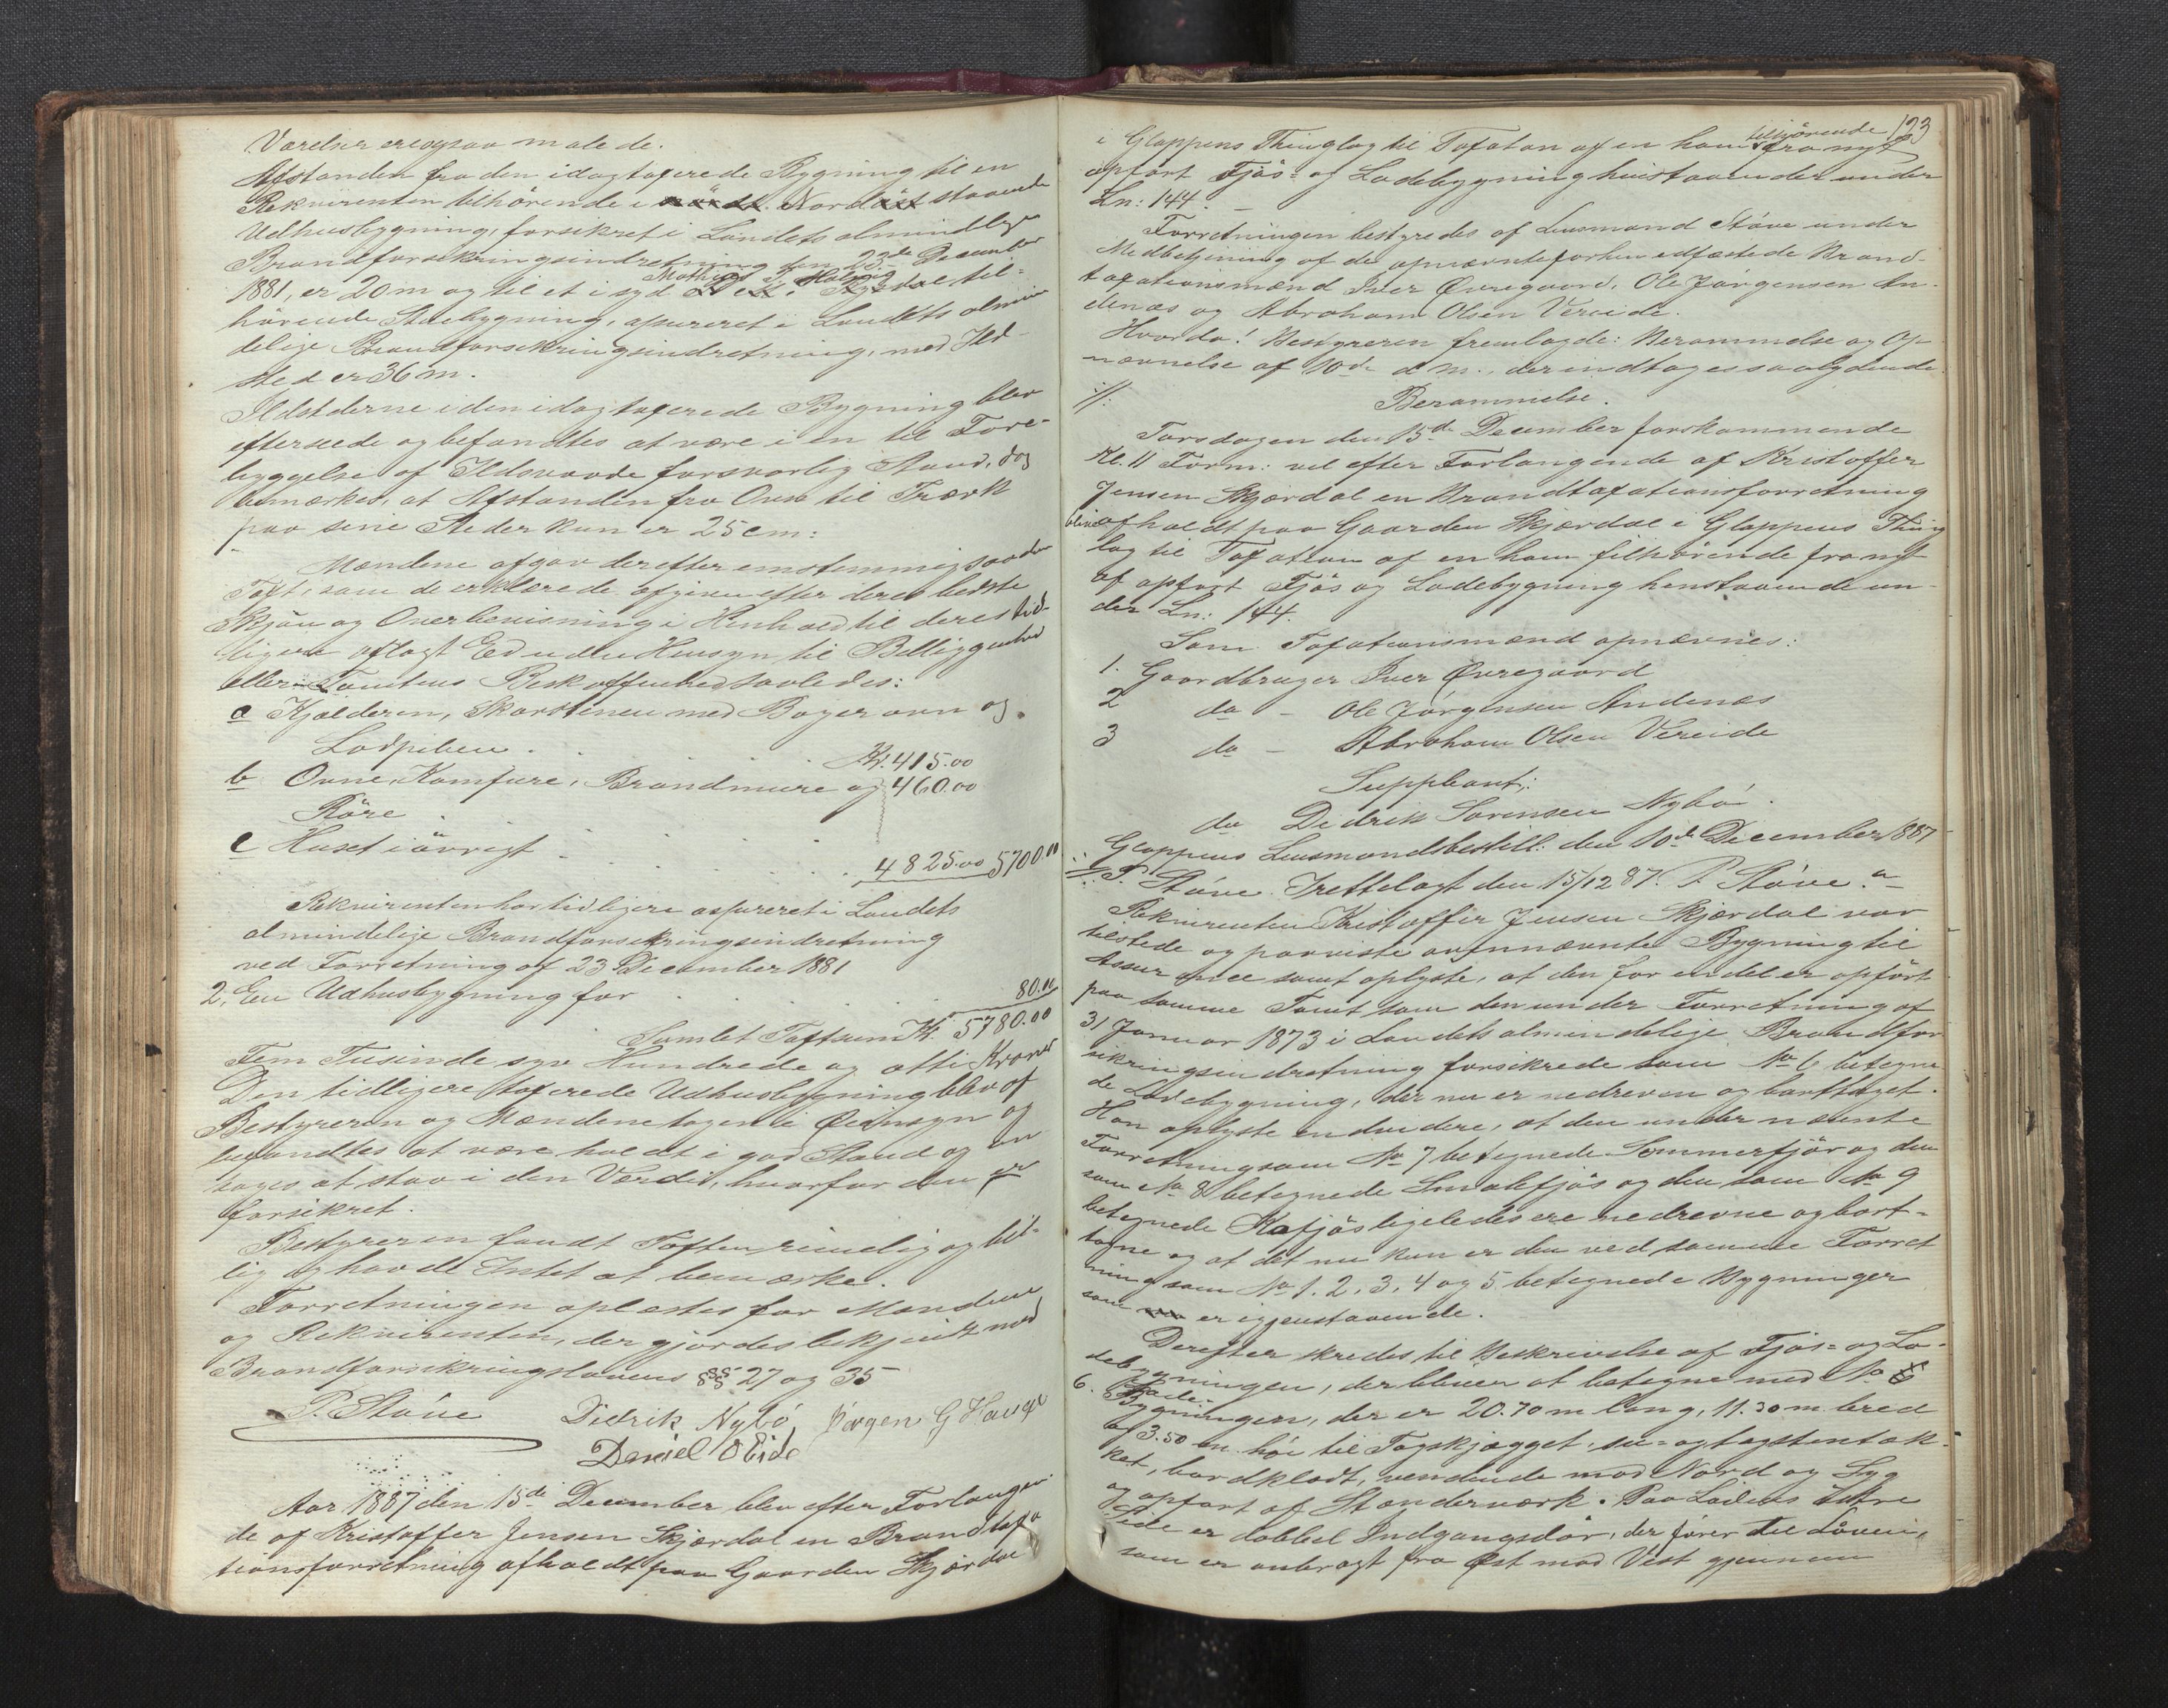 Værelser ereogsaa malede.
Afstanden fra den idag taxerede Bygning til en
Rekvirenten tilhörende i Nordöst staaende
Udhusbygning, forsikret i Landets almindlige
Brandforsikringsindretning den 23de December
1881, er 20 m og til et i syd Mathias T. til-
hörende Stuebygning, assureret i Landets almin
delige Brandforsikringsindretning, med Ild-
sted er 36 m.
Ildstederne i den idag taxerede Bygning blev
efterseede og befandtes at være i en til Fore-
byggelse af Ildsvaade forsvarlig Stand, dog
bemærkes, at Afstanden fra Ovn til Trærk
paa sine Steder kun er 25 cm:
Mændene afgav derefter enstemmig saadan
Taxt, som de erklærede afgiven efter deres bedste
Skjön og Overbevisning i Henhold til deres tid-
ligere aflagt Ed uden Hensyn til Beliggenhed
eller Tomtens Beskaffenhed saaledes:
a Kjælderen, Skorstenen med Bagerovn og
Lodpiben . . . Kr. 415.00
b Ovne, Komfure, Brandmure og 460.00
Röre .
c Huset iövrigt . . . . . 4825.00 5700.00
Rekvirenten har tidligere assureret i Landets
almindelige Brandforsikringsindretning
ved Forretning af 23 December 1881
2, En Udhusbygning for . . . . . 80.00
Samlet Taxtsum Kr. 5780.00
Fem Tusinde syv Hundrede og otti Kroner
Den tidligere taxerede Udhusbygning blev af
Bestyreren og Mændene tagen i Öiensyn og
befandtes at være holdt i god Stand og an
sages at staa i den Værdi, hvorfor den er
forsikret.
Bestyreren fandt Taxten rimelig og bil-
lig og havde Intet at bemærke.
Forretningen oplæstes for Mændene
og Rekvirenten, der gjordes bekjendt med
Brandforsikringslovens §§ 27 og 35
P. Stöve Didrik Nybö Jörgen G Hauge
Daniel O Eide
Aar 1887 den 15de December blev efter Forlangen
de af Kristoffer Jensen Skjærdal en Brandtaxa
tionsforretning afholdt paa Gaarden Skjærdal
123
i Gloppens Thinglag til Taxation af en ham tilhörende fra nyt
opfört Fjös- og Ladebygning henstaaende under
Ln: 144. –
Forretningen bestyredes af Lensmand Stöve under
Medbetjening af de opnævnte forhen edfæstede Brand-
taxationsmænd Iver Øvregaard, Ole Jörgensen An-
denæs og Abraham Olsen Vereide.
Hvorda! Bestyreren fremlagde: Berammelse og Op-
nævnelse af 10de d. M., der indtages saalydende
://:
Berammelse.
Torsdagen den 15de December förstkommende
Kl. 11 Form: vil efter Forlangende af Kristoffer
Jensen Skjærdal en Brandtaxationsforretning
blive afholdt paa Gaarden Skjærdal i Gloppens Thing
lag til Taxation af en ham tilhörende fra nyt
af opfört Fjös og Ladebygning henstaaende un-
der Ln: 144.
Som Taxationsmænd opnævnes:
1. Gaardbruger Iver Øvregaard
2 do – Ole Jörgensen Andenæs
3 do – Abraham Olsen Vereide
Suppleant:
do Didrik Sörensen Nybö.
Gloppens Lensmandsbestill: den 10de December 1887
P. Stöve. Irettelagt den 15/12 87. P. Stöve.
Rekvirenten Kristoffer Jensen Skjærdal var
tilstede og paaviste ovennævnte Bygning til
Assurance samt oplyste, at den for en del er opfört
paa samme Tomt som den under Forretning af
31 Januar 1873 i Landets almindelige Brandfor
sikringsindretning forsikrede som No 6 betegne
de Ladebygning, der nu er nedreven og borttaget.
Han oplyste endvidere, at den under nævnte
Forretning som No 7 betegnede Sommerfjös og den
som No 8 betegnede Smalefjös og den som No 9
betegnede Kafjös ligeledes ere nedrevne og bort-
tagne og at det nu kun er den ved samme Forret
ning som No 1. 2. 3. 4 og 5 betegnede Bygninger
som er igjenstaaende.
Derefter skredes til Beskrivelse af Fjös- og La-
debygningen, der bliver at betegne med No 6
6. Bygningen, der er 20.70 m lang, 11.30 m bred
og 3.50 m. höi til Tagskjægget, og tagstentæk-
ket, bordklædt, vendende mod Nord og Syd
og opfört af Stænderværk. Paa Ladens östre
Side er dobbel Indgangsdör, der förer til Löven,
som er anbragt fra Öst mod Vest gjennem